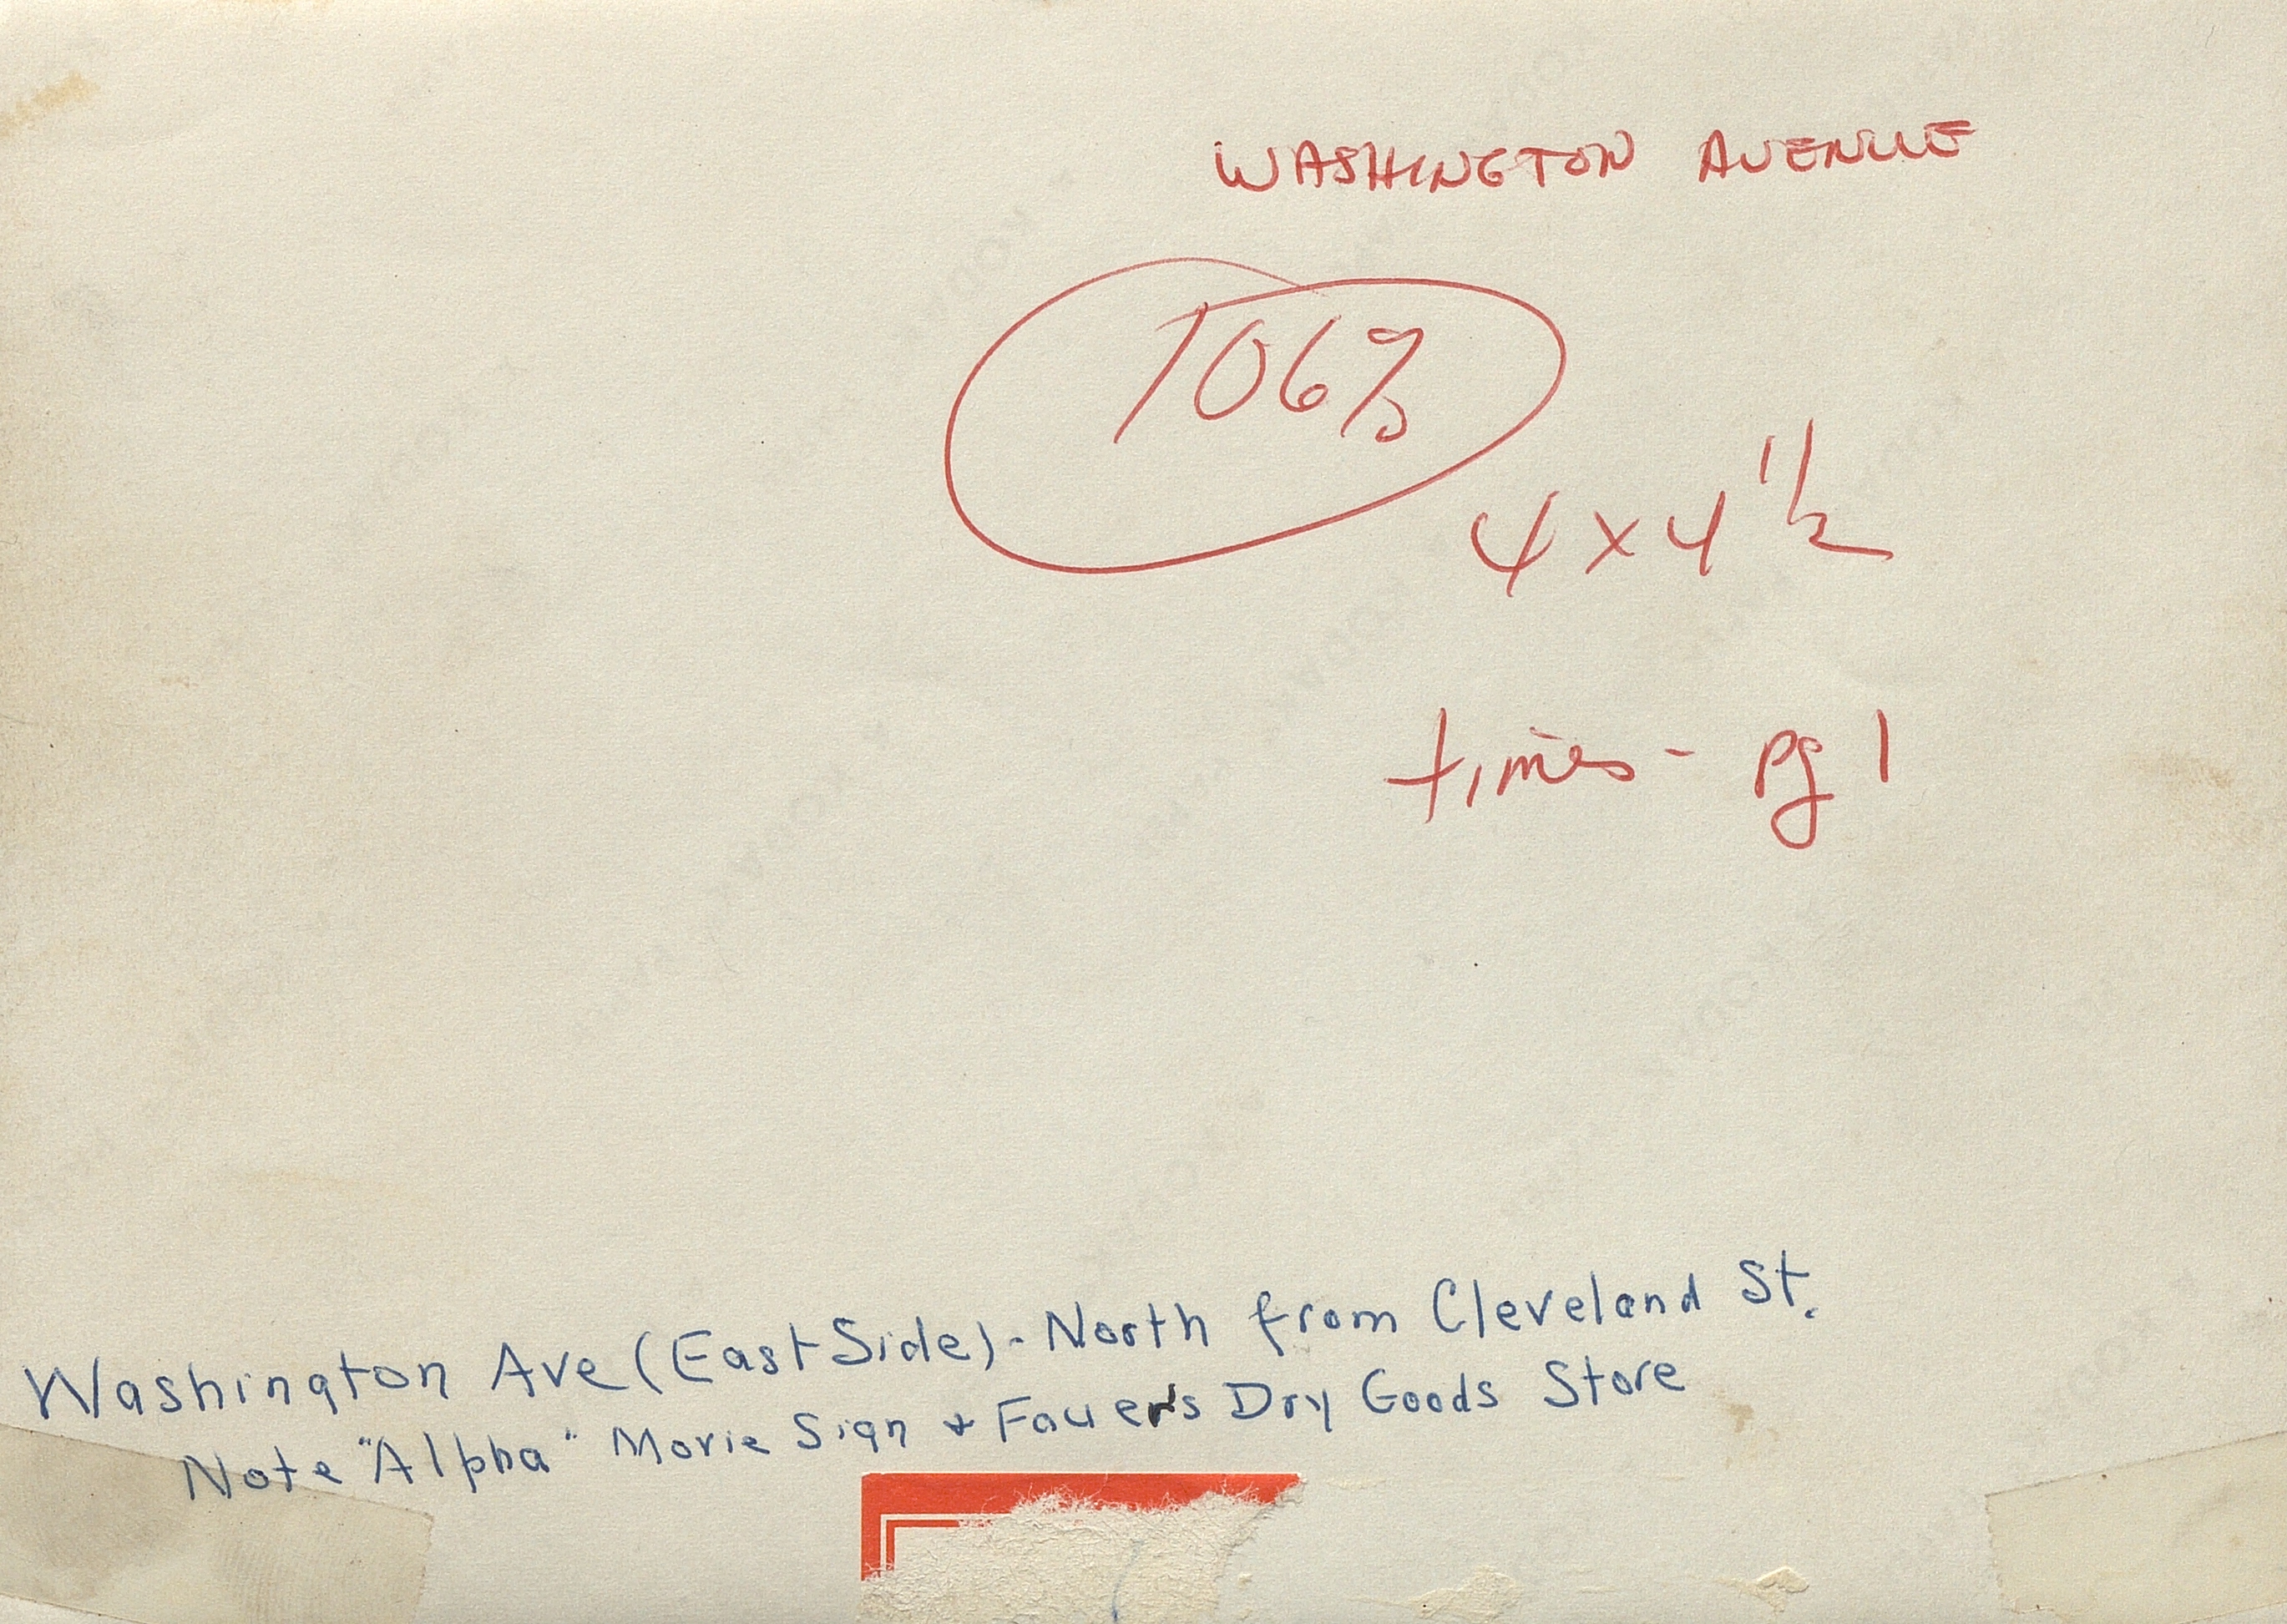 WASHINGTON AVENUE
106%
4 x 4 1/2
times - pg 1
Washington Ave (East Side) - North from Cleveland St.
Note "Alpha" Movie Sign + Fauers Dry Goods Store